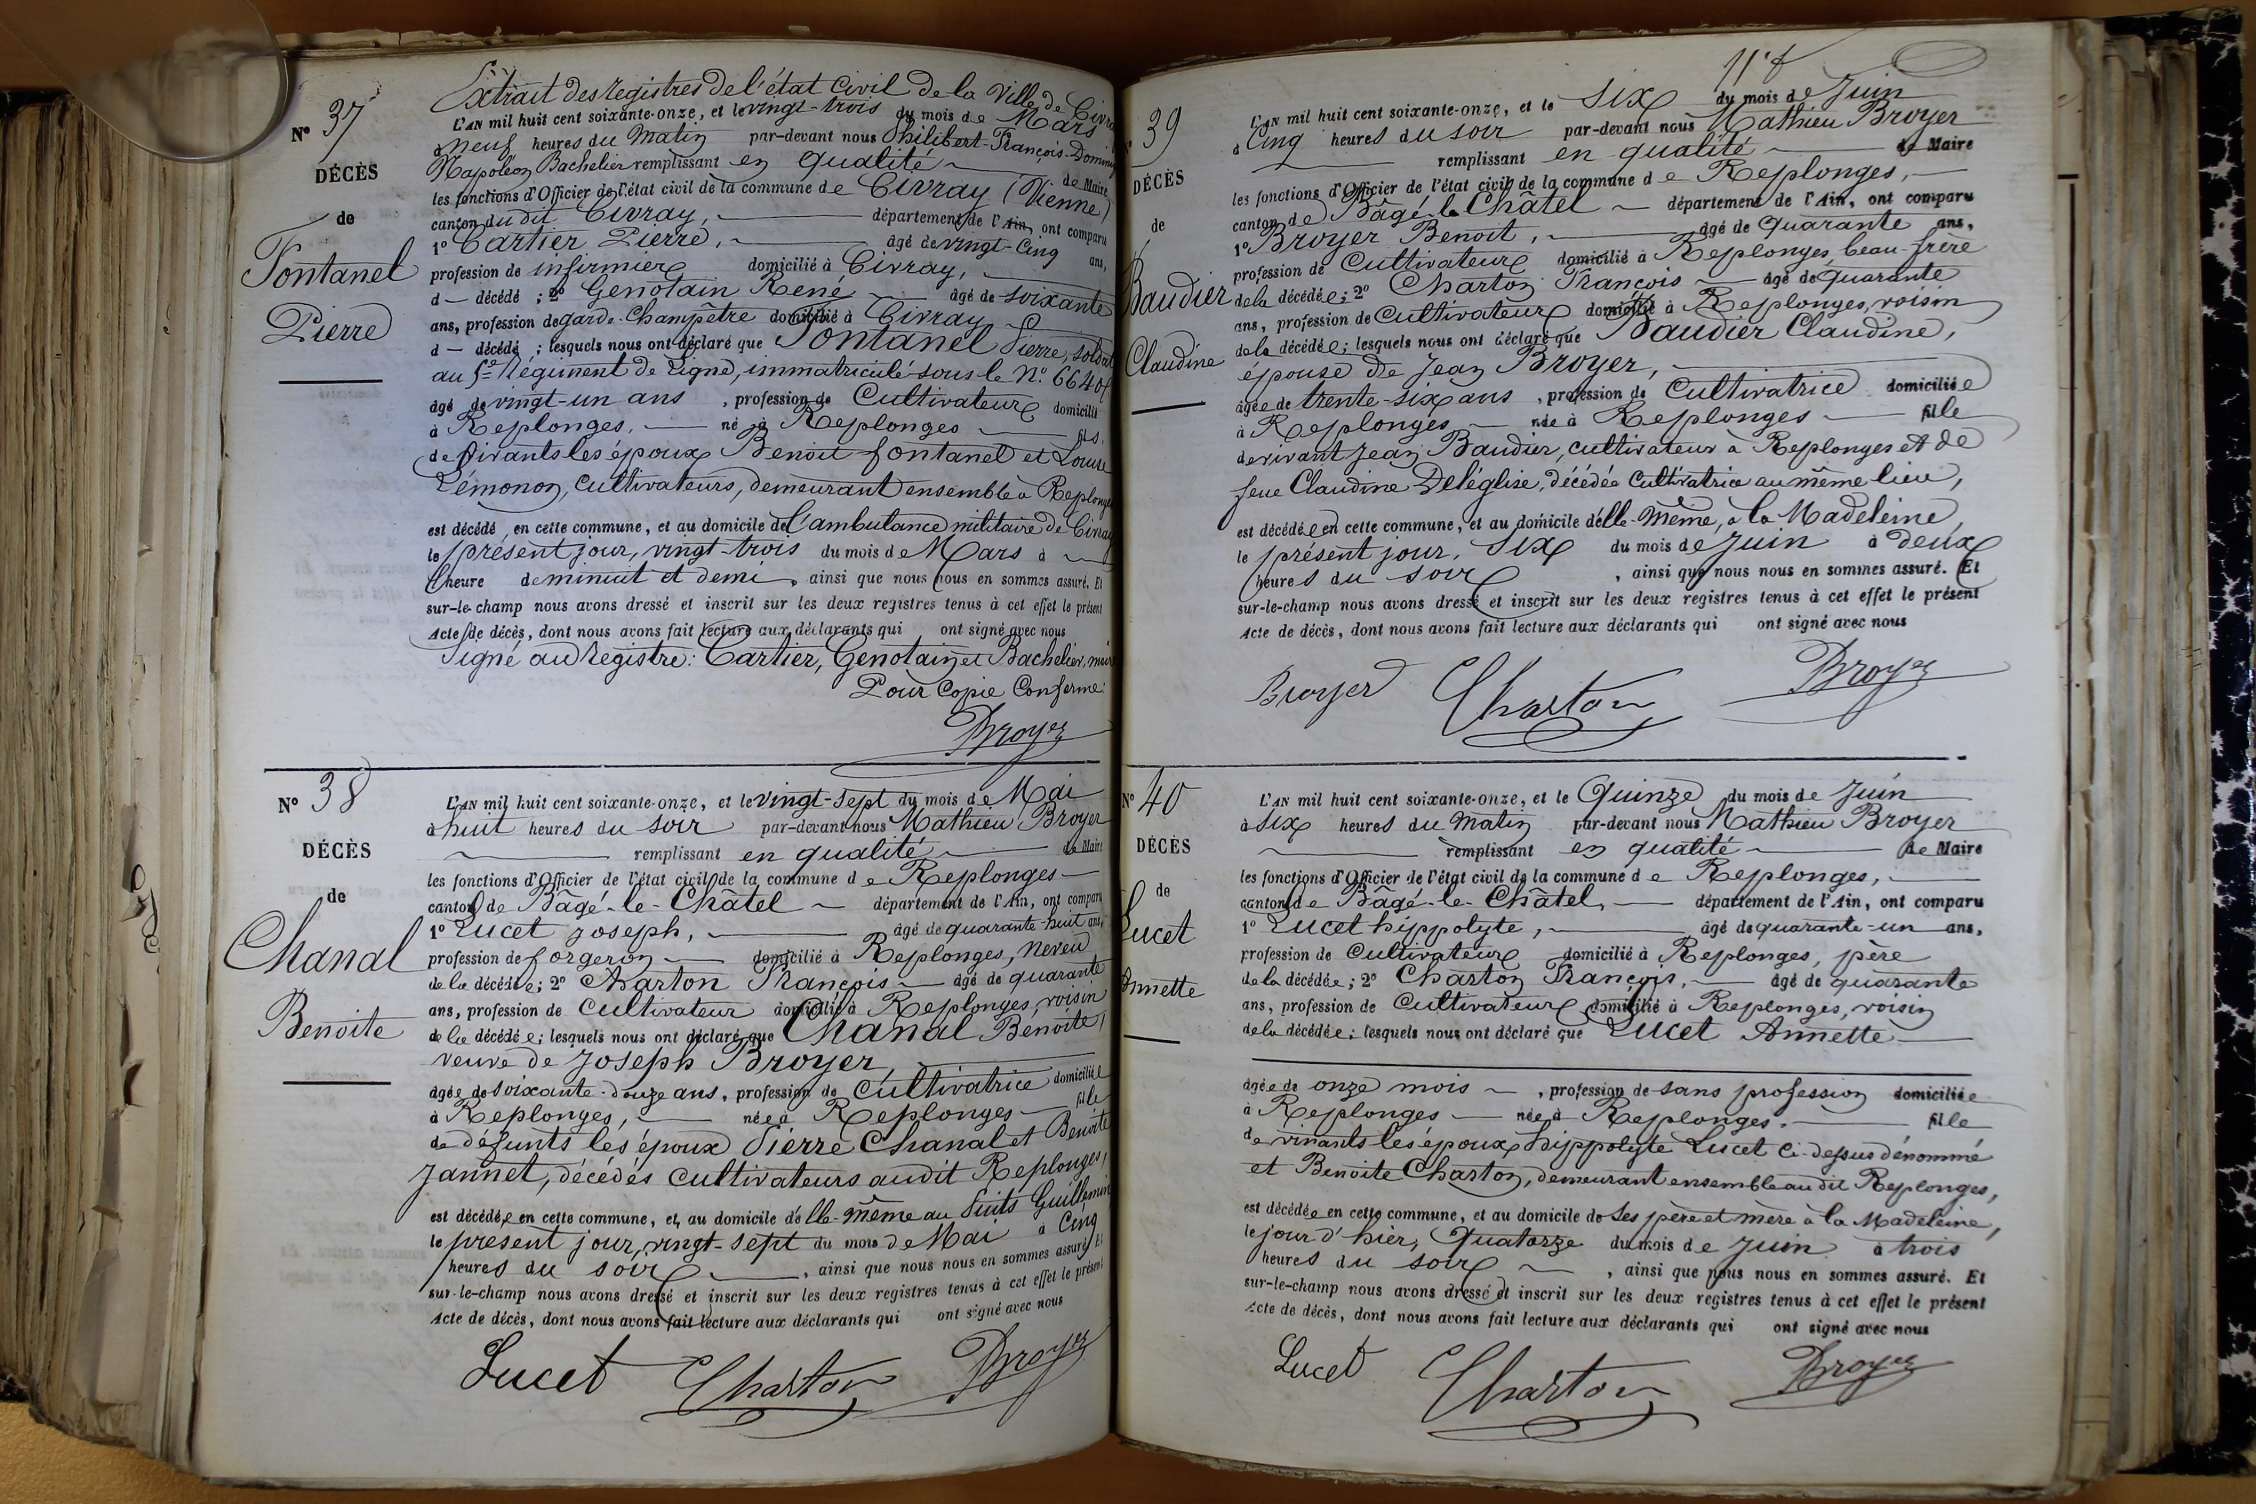 Extrait des registres de l'état civil de la Ville de Civray
N° 37
DÉCÈS
de
Fontanel
Pierre
L'AN mil huit cent soixante-onze, et le vingt-trois du mois de Mars
à neuf heures du Matin par-devant nous Philibert-François-Dominique
Napoléon Bachelier remplissant en qualité de Maire
les fonctions d'Officier de l'état civil de la commune de Civray (Vienne)
canton du dit Civray, département de l'Ain, ont comparu
1° Cartier Pierre, âgé de vingt-cinq ans,
profession de infirmier domicilié à Civray,
d — décédé ; 2° Genotain René âgé de soixante
ans, profession de garde-Champêtre domicilié à Civray
d — décédé ; lesquels nous ont déclaré que Fontanel Pierre, soldat
au 5e Régiment de Ligne, immatriculé sous le N°
âgé de vingt-un ans, profession de Cultivateur domicilié
à Replonges, né à Replonges fils
de vivants les époux Benoit fontanel et Louise
Lémonon, cultivateurs, demeurant ensemble à Replonges
est décédé en cette commune, et au domicile de l'ambulance militaire de Civray
le présent jour, vingt-trois du mois de Mars à
l'heure de minuit et demi, ainsi que nous nous en sommes assuré. Et
sur-le-champ nous avons dressé et inscrit sur les deux registres tenus à cet effet le présent
Acte de décès, dont nous avons fait lecture aux déclarants qui ont signé avec nous
Signé au registre : Cartier, Genotain et Bachelier, maire
Pour Copie Conforme :
Broyer
N° 38
DÉCÈS
de
Chanal
Benoite
L'AN mil huit cent soixante-onze, et le vingt-sept du mois de Mai
à huit heures du soir par-devant nous Mathieu Broyer
remplissant en qualité de Maire
les fonctions d'Officier de l'état civil de la commune de Replonges
canton de Bagé-le-Châtel département de l'Ain, ont comparu
1° Lucet Joseph, âgé de quarante-huit ans,
profession de forgeron domicilié à Replonges, neveu
de la décédée ; 2° Charton François âgé de quarante
ans, profession de Cultivateur domicilié à Replonges, voisin
de la décédée ; lesquels nous ont déclaré que Chanal Benoite,
veuve de Joseph Broyer,
âgée de soixante-douze ans, profession de Cultivatrice domiciliée
à Replonges, née à Replonges fille
de défunts les époux Pierre Chanal et Benoite
Jannet, décédés cultivateurs audit Replonges,
est décédée en cette commune, et au domicile d'elle-même au Puits Guillemin
le présent jour, vingt-sept du mois de Mai à Cinq
heures du soir, ainsi que nous nous en sommes assuré. Et
sur-le-champ nous avons dressé et inscrit sur les deux registres tenus à cet effet le présent
Acte de décès, dont nous avons fait lecture aux déclarants qui ont signé avec nous
Lucet Charton Broyer
39
DÉCÈS
de
Baudier
Claudine
L'AN mil huit cent soixante-onze, et le six du mois de Juin
à Cinq heures du soir par-devant nous Mathieu Broyer
remplissant en qualité de Maire
les fonctions d'Officier de l'état civil de la commune de Replonges,
canton de Bâgé-le-Châtel département de l'Ain, ont comparu
1° Broyer Benoit, âgé de Quarante ans,
profession de Cultivateur domicilié à Replonges, beau-frère
de la décédée ; 2° Charton François âgé de Quarante
ans, profession de Cultivateur domicilié à Replonges, voisin
de la décédée ; lesquels nous ont déclaré que Baudier Claudine,
épouse de Jean Broyer,
âgée de trente-six ans, profession de Cultivatrice domiciliée
à Replonges née à Replonges fille
de vivant Jean Baudier, cultivateur à Replonges et de
feue Claudine Deléglise, décédée Cultivatrice au même lieu,
est décédée en cette commune, et au domicile d'elle-même, à la Madeleine,
le présent jour, six du mois de Juin à deux
heures du soir, ainsi que nous nous en sommes assuré. Et
sur-le-champ nous avons dressé et inscrit sur les deux registres tenus à cet effet le présent
Acte de décès, dont nous avons fait lecture aux déclarants qui ont signé avec nous
Broyer Charton Broyer
N° 40
DÉCÈS
de
Lucet
Annette
L'AN mil huit cent soixante-onze, et le Quinze du mois de Juin
à six heures du Matin par-devant nous Mathieu Broyer
remplissant en qualité de Maire
les fonctions d'Officier de l'état civil de la commune de Replonges,
canton de Bâgé-le-Châtel, département de l'Ain, ont comparu
1° Lucet hippolyte, âgé de quarante-un ans,
profession de Cultivateur domicilié à Replonges, père
de la décédée ; 2° Charton François, âgé de quarante
ans, profession de Cultivateur domicilié à Replonges, voisin
de la décédée ; lesquels nous ont déclaré que Lucet Annette
âgée de onze mois, profession de sans profession domiciliée
à Replonges née à Replonges. fille
de vivants les époux hippolyte Lucet ci-dessus dénommé
et Benoite Charton, demeurant ensemble au dit Replonges,
est décédée en cette commune, et au domicile de ses père et mère à la Madeleine,
le jour d'hier, Quatorze du mois de Juin à trois
heures du soir, ainsi que nous nous en sommes assuré. Et
sur-le-champ nous avons dressé et inscrit sur les deux registres tenus à cet effet le présent
Acte de décès, dont nous avons fait lecture aux déclarants qui ont signé avec nous
Lucet Charton Broyer